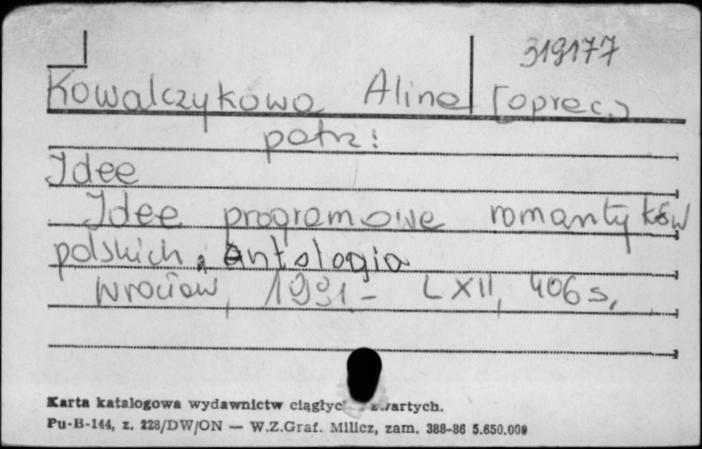 319177
Kowalczykowa Alina [oprac.]
patrz:
Idee
Idee programowe romantyków
polskich. Antologia
Wrocław, 1991 - LXII, 406 s.
Karta katalogowa wydawnictw zwartych.
Pu-B-144, z. 228/DW/ON — W.Z.Graf. Milicz, zam. 388-86 5.650.000